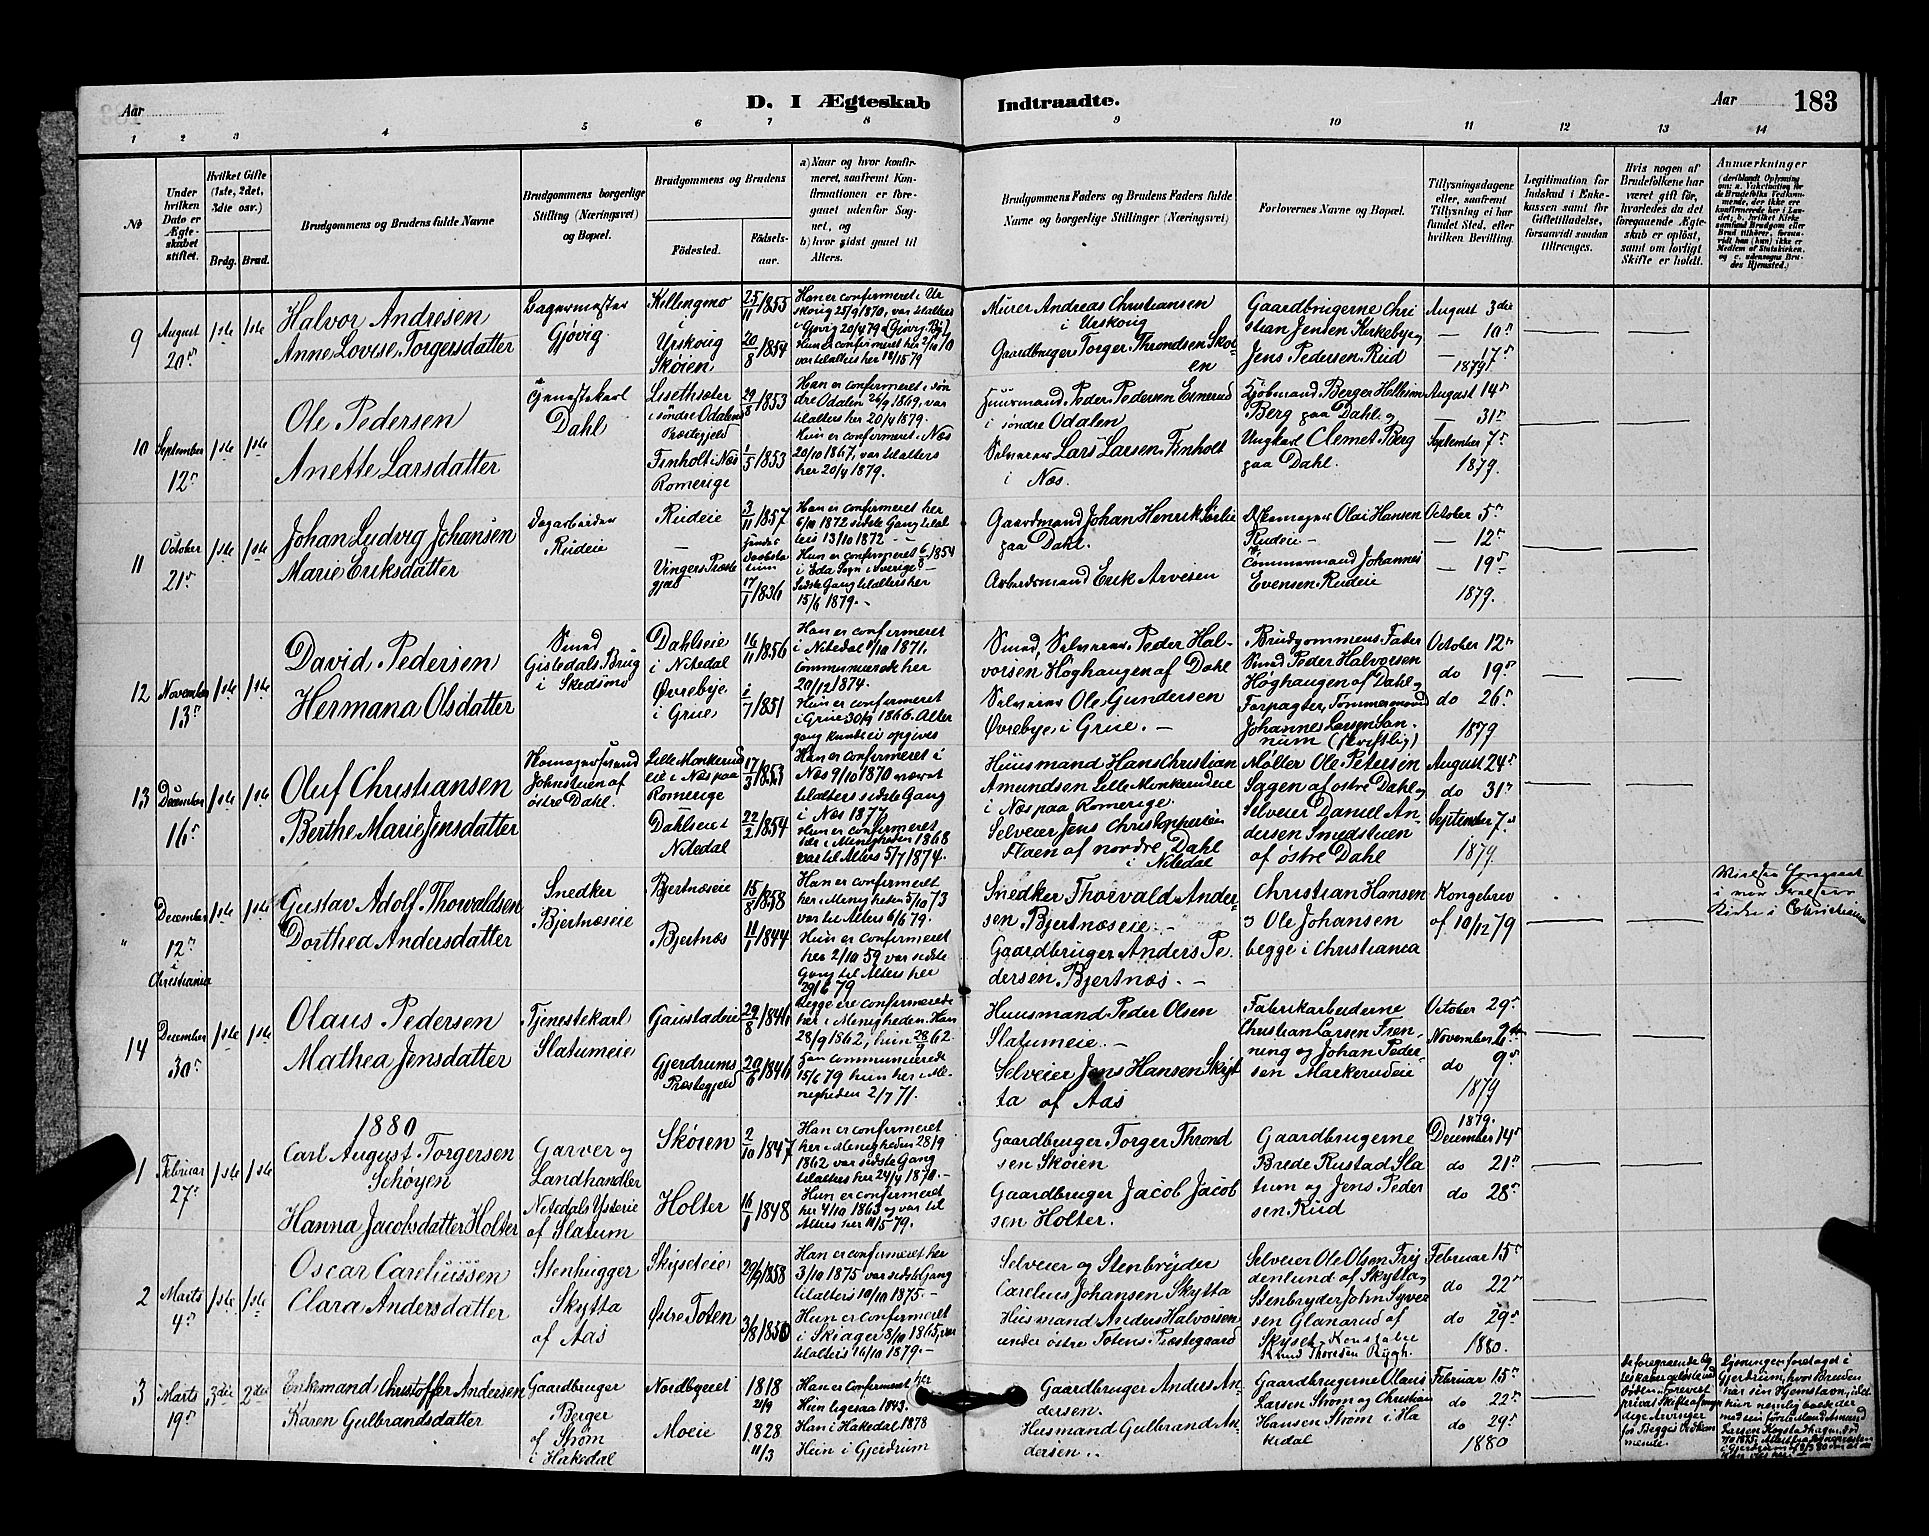 Aar
D. I Ægteskab
Indtraadte.
Aar
183
1 2 3 4 5 6 7 8 9 10 11 12 13 14
№
Under hvilken Dato er Ægteskabet stiftet.
Hvilket Gifte (1ste, 2det, 3die osv.)
Brdg.
Brud.
Brudgommens og Brudens fulde Navne
Brudgommens borgerlige Stilling (Næringsvei) og Bopæl.
Brudgommens og Brudens
Fødested.
Fødselsaar.
a) Naar og hvor konfirmeret, saafremt Konfirmationen er foregaaet udenfor Sognet, og
b) hvor sidst gaaet til Alters.
Brudgommens Faders og Brudens Faders fulde Navne og borgerlige Stillinger (Næringsvei)
Forlovernes Navne og Bopæl.
Tillysningsdagene eller, saafremt Tillysning ei har fundet Sted, efter hvilken Bevilling.
Legitimation for Indskud i Enkekassen samt for Giftetilladelse, forsaavidt saadan tiltrænges.
Hvis nogen af Brudefolkene har været gift før, hvorledes da det foregaaende Ægteskab er opløst, samt om lovligt Skifte er holdt.
Anmærkninger
9
August
20de
1ste 1ste
Halvor Andresen
Anne Lovise Torgersdatter
Bagermester
Gjøvig
Killingmo
i
Urskoug
Skøien
25/11 1855
20/8 1854
Han er confirmeret i Ur
skoug 25/9 1870, var tilalters
i Gjøvig 20/4 79
Hun er confirmeret her
var tilalters her 18/5 79
Murer Andreas Christiansen
i Urskoug
Gaardbruger Torger Throndsen Skøi-
en
Gaardbrugerne Chri
stian Jensen Kirkebye og
Jens Pedersen Rud
August 3die
— 10de
— 17de
1879
10
September
12te
1ste 1ste
Ole Pedersen
Anette Larsdatter
Tjenestekarl
Dahl
i søndre Odalens
Præstegjeld
Finholt i Næs
Romerige
29/8 1853
1/5 1853
Han er confirmeret i søn
dre Odalen 26/9 1869, var
tilalters her 20/4 1879.
Hun er confirmeret i Næs
20/10 1867, var tilalters
her 20/4 1879.
Huusmand Peder Pedersen
i søndre Odalen
Selveier Lars Larsen Finholt
i Næs.
Kjøbmand Berger Hellesen
Berg paa Dahl og
Ungkarl Clemet Berg
paa Dahl.
August 14de
— 31te
September 7de
1879.
11
October
21de
1ste 1ste
Johan Ludvig Johansen
Marie Eriksdatter
Dagarbeider
Rudeie
Rudeie
—
Vingers Præste
gjeld
3/11 1857
17/1 1836
Han er confirmeret her
6/10 1872 sidste Gang tilal
ters 13/10 1872
Hun er confirmeret 6/8 1854
i Eda Sogn i Sverige
Sidste Gang tilalters her
15/6 1879.
Gaardmand Johan Henrik Sørlie
paa Dahl.
Arbeidsmand Erik Arvesen
Skomager Olai Hansen
Rudeie —
Tømmermand Johannes
Evensen Rudeie
October 5te
— 12te
— 19de
1879.
12
November
13de
1ste 1ste
David Pedersen
Hermana Olsdatter
Smed
Gisledals Brug
i Skedsmo
Dahlseie
i Nitedal
Øvrebye
i Grue
16/11 1856
1/7 1851
Han er confirmeret
i Nitedal 1/10 1871,
Communicerede her
20/12 1874.
Hun er confirmeret
i Grue 30/9 1866. Alter
gang kunde ei opgives
Smed, Selveier, Peder Hal-
vorsen Høghaugen af Dahl
Selveier Ole Gundersen
Øvrebye i Grue.
Brudgommens Fader
Smed Peder Halvorsen
Høghaugen af Dahl og
Forpagter, Tømmermand
Johannes Larsen San-
num (skriftlig)
October 12te
do 19de
do 26de
1879
13
December
16de
1ste 1ste
Oluf Christiansen
Berthe Marie Jensdatter
Skomagersvend
Johnstuen af
østre Dahl.
Lille Monkerud
eie i Næs paa
Romerige
Dahlseie i
Nitedal
17/3 1853
22/2 1854
Han er confirmeret i
Næs 9/10 1870 været
tilalters sidste Gang
i Næs 1877
Hun er confirmeret
her i Menigheden 1868
var til Alters 5/7 1874.
Huusmand Hans Christian
Amundsen Lille Monkerudeie
i Næs paa Romerige.
Selveier Jens Christophersen
Flaen af nordre Dahl
i Nitedal
Møller Ole Petersen
Sagen af østre Dahl og
Selveier Daniel An-
dersen Smedstuen
af østre Dahl
August 24de
do 31te
September 7de
1879.
"
December
12te
i
Christiania
1ste 1ste
Gustav Adolf Thorvaldsen
Dorthea Andersdatter
Snedker
Bjertnæseie
Bjertnæseie
Bjertnæs
15/8 1858
11/1 1844
Han er confirmeret
her i Menigheden 5/10 73
var til Alters 6/6 79.
Hun er confirmeret
her 2/10 59 var sidste
Gang til Alters her
29/6 79
Snedker Thorvald Ander-
sen Bjertnæseie.
Gaardbruger Anders Pe-
dersen Bjertnæs.
Christian Hansen
og Ole Johansen
begge i Christiania
Kongebrev
af 10/12 79
Vielsen foregaaet
i vor Frelsers
Kirke i Christiania
14
December
30te
1ste 1ste
Olaus Pedersen
Mathea Jensdatter
Tjenestekarl
Slatumeie
Gaustadeie
Gjerdrums
Præstegjeld
29/8 1846
20/6 1846
Begge ere confirmerede
her i Menigheden. Han
28/9 1862, hun 28/9 62.
Han communicerede
15/6 79 hun her i Me-
nigheden 2/7 71.
Huusmand Peder Olsen
Slatumeie.
Selveier Jens Hansen Skyt
ta af Aas
Fabrikarbeiderne
Christian Larsen Fren-
ning og Johan Peder-
sen Markerudeie
October 29de
November 2den
do 9de
1879
1880
1
Februar
27de
1ste 1ste
Carl August Torgersen
Schøyen
Hanna Jacobsdatter Holter
Garver og
Landhandler
Nitedals Ysterie
af Slatum
Skøien
Holter
2/10 1847
16/1 1848
Han er confirmeret
her i Menigheden 28/9
1862 var sidste Gang
tilalters her 24/4 1870.
Hun er confirmeret
her 4/10 1863 og var til
Alters her 11/5 79.
Gaardbruger Torger Thrond
sen Skøien
Gaardbruger Jacob Jacob
sen Holter.
Gaardbrugerne
Brede Rustad Sla
tum og Jens Peder
sen Rud
1879.
December 14de
do 21de
do 28de
2
Marts
4de
1ste 1ste
Oscar Careliussen
Clara Andersdatter
Stenhugger
Skytta
af Aas
Skysdeie
Østre Toten
1858
3/8 1850
Han er confirmeret her
3/10 1875 var sidste Gang
tilalters 10/10 1875 —
Hun er confirmeret
i Skiager 8/10 1865, var
tilalters 16/10 1879.
Selveier og Stenbryder
Carelius Johansen Skytta
Husmand Anders Halvorsen
under østre Totens Præstegaard
Selveier Ole Olsen Fry
denlund af Skytta og
Stenbryder John Syver
sen Glanarud af
Skyset
Februar 15de
do 22de
do 29de
1880.
3
Marts
19de
3die 2den
Enkemand Christoffer Andersen
Karen Gulbrandsdatter
Gaardbruger
Berger
af Strøm
i Hakedal
Nordbyeiet
Moeie
1818
21/9
1828
11/3
Han er confirmeret her
Hun ligesaa 1843.
Han i Hakedal 1878
Hun i Gjerdrum
Gaardbruger Anders An-
dersen.
Husmand Gulbrand An-
dersen.
Gaardbrugerne Olaus
Larsen Strøm og Christian
Hansen Strøm i Ha
kedal
Februar 15de
do 22de
do 29de
1880